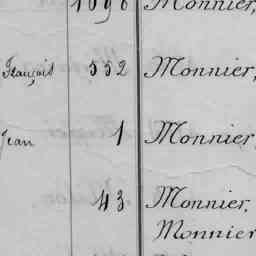 1096 Monnier,
François 552 Monnier,
Jean 1 Monnier,
43 Monnier.
Monnier